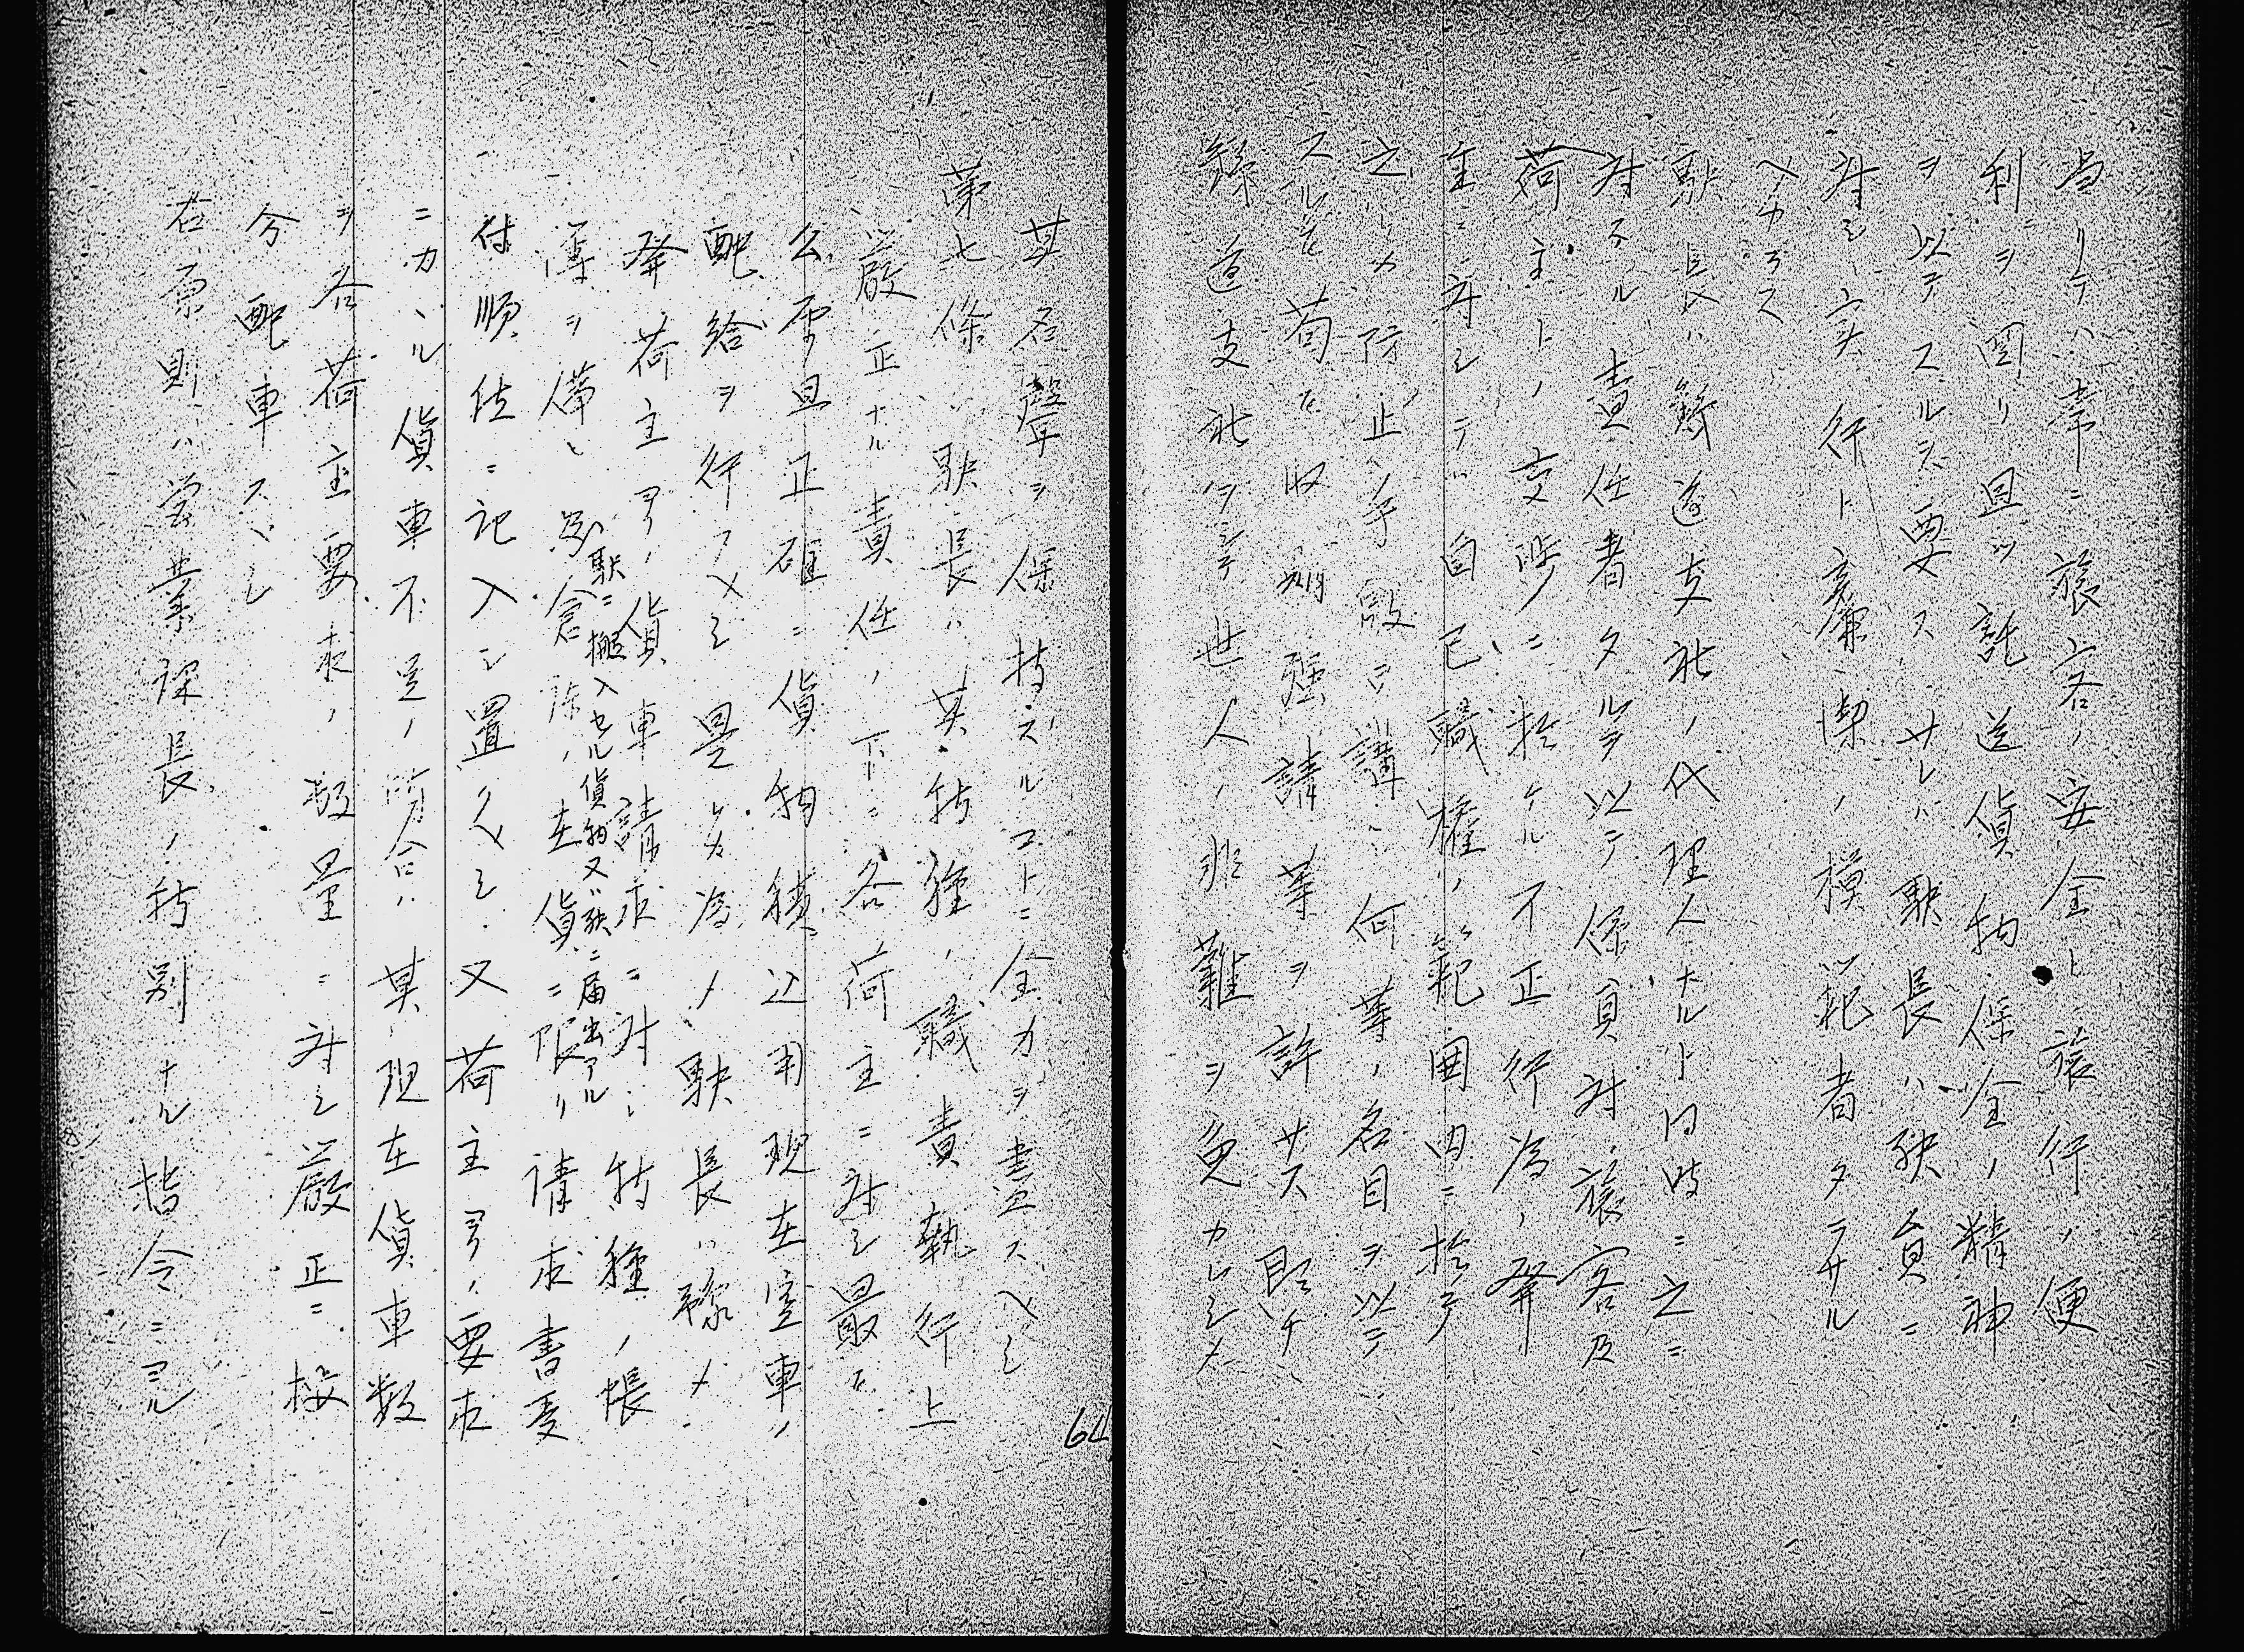 当リテハ常ニ旅客ノ安全ト旅行ノ便
利ヲ図リ且ツ託送貨物保全ノ精神
ヲ以テスルヲ要ス サレハ駅長ハ駅員ニ
対シ実行ト廉潔ノ模範者タラサル
ヘカラス
駅長ハ鉄道支社ノ代理人ナルト同時ニ之ニ
対スル責任者タルヲ以テ係員対旅客乃
荷主トノ交渉ニ於ケル不正行為ノ発
生ニ対シテハ自己職権ノ範囲内ニ於テ
之カ防止ノ手段ヲ講シ何等ノ名目ヲ以テ
スルモ苟モ収賄強請等ヲ許サス即チ
鉄道支社ヲシテ世人ノ非難ヲ免カレシメ
其名声ヲ保持スルコトニ全力ヲ尽スヘシ
第七條 駅長ハ其特種ノ職責執行上
厳正ナル責任ノ下ニ各荷主ニ対シ最モ
公平且正確ニ貨物積込用現在空車ノ
配給ヲ行フヘシ 是レカ為メ駅長ハ予メ
発荷主ヨリノ貨車請求ニ対シ特種ノ帳
簿ヲ備ヘ
駅ニ搬入セル貨物又ハ駅ニ届出アル
在貨ニ限リ請求書受
付順位ニ記入シ置クヘシ 又荷主ヨリノ要求
ニカヽル貨車不足ノ場合ハ其現在貨車数
ヲ各荷主要求ノ数量ニ対シ厳正ニ按
分配車スヘシ
右原則ハ営業課長ノ特別ナル指令ニヨル